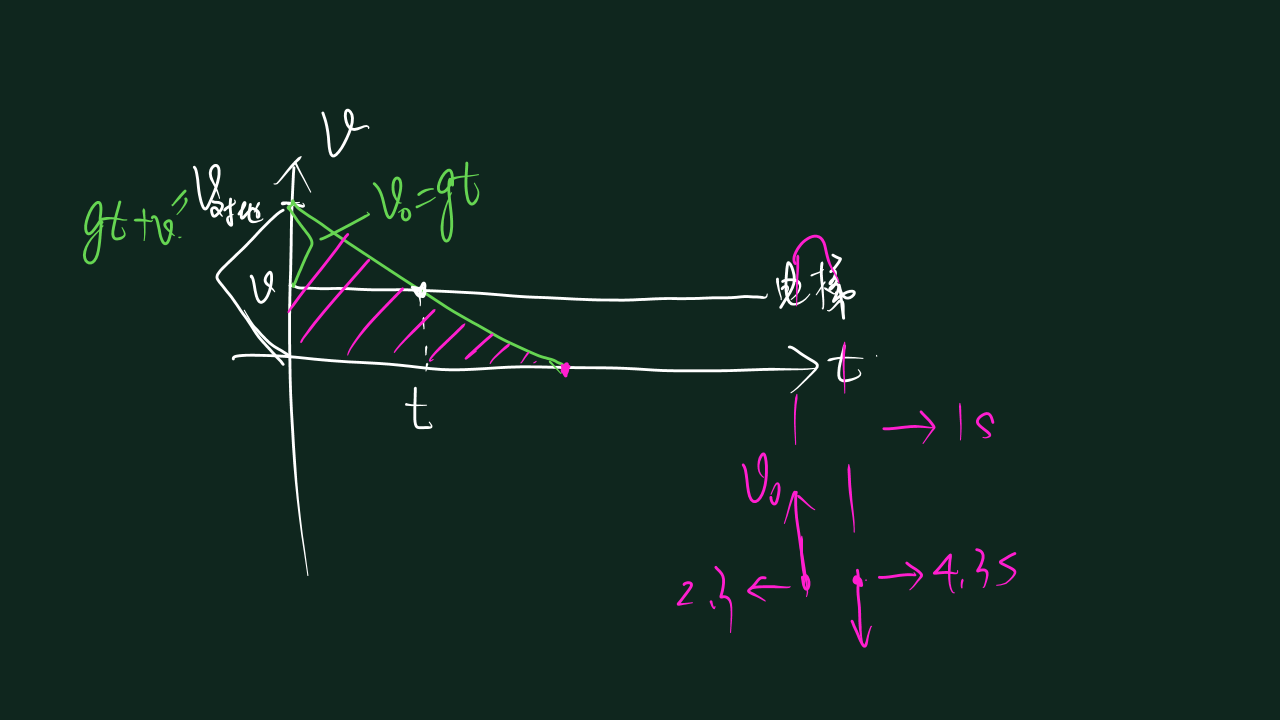 v
gt+v=v对地
v₀=gt
v
电梯
t
t
→1s
v₀
2.3←
→4.3s